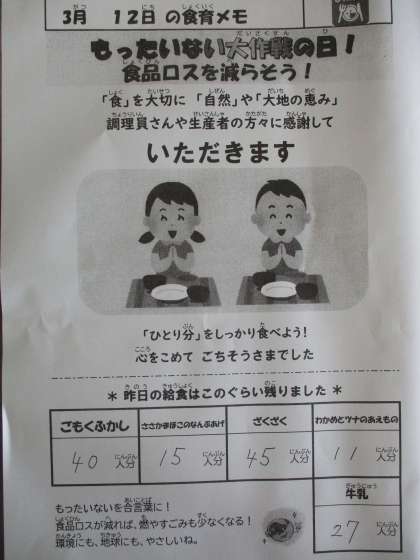 3月 12日 の食育メモ
もったいない大作戦の日！
食品ロスを減らそう！
「食」を大切に 「自然」や「大地の恵み」
調理員さんや生産者の方々に感謝して
いただきます
「ひとり分」をしっかり食べよう！
心をこめて ごちそうさまでした
＊ 昨日の給食はこのぐらい残りました ＊
ごもくふかし ささかまぼこのなんぶあげ ざくざく わかめとツナのあえもの
40人分 15人分 45人分 11人分
牛乳
27人分
もったいないを合言葉に！
食品ロスが減れば、燃やすごみも少なくなる！
環境にも、地球にも、やさしいね。